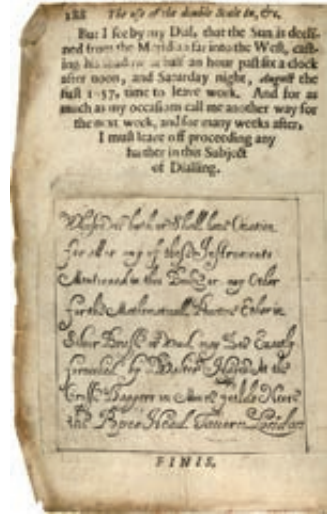 188 The use of the double Scale in, &c.
But I see by my Dial, that the Sun is decli-
ned from the Meridian far into the West, cast-
ing his shadow at half an hour past six a clock
after noon, and Saturday night, August the
first time to leave work. And for as
much as my occasions call me another way for
the next week, and for many weeks after,
I must leave off proceeding any
further in this Subject
of Dialling.
hath or Shall have Occation
for all or any of these Instruments
Mentioned in this Booke or any Other
for the Mathematicall Ether in
Silver Brasse or Wood may bee Exactly
furnished by Hayes At the
Crosse Daggers in Moore feilds Neere
the Pope Head Tavern London
FINIS.